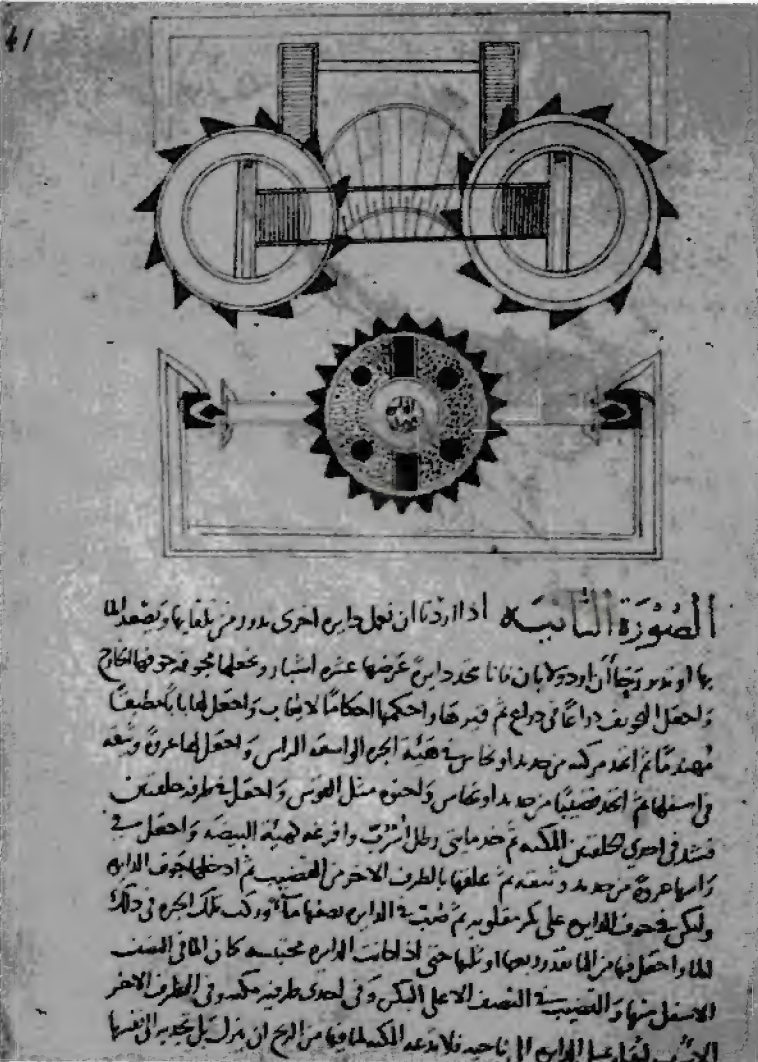 41
الصورة الثانية اذا اردنا ان نعمل دايره اخرى تدور من تلقايها وتصعد الما
بها او تدير رحا او دولابا فانا نتخذ دايرة عرضها عشرة اشبار ونجعلها مجوفة جوفها الخارج
واجعل التجويف ذراعا في ذراع ثم قيرها واحكمها احكاما لا يعاب واجعل لها بابا مطبقا
مهندما ثم اتخذ من حديد او نحاس في هيئة الجره الواسعة الراس واجعل لها عروة وثيقه
في اسفلها ثم اتخذ قضيبا من حديد او نحاس واحنوه مثل القوس واجعل في طرفه حلقتين
فشد في احدى الحلقتين المكبه ثم خذ مايتي رطل اسرب وافرغه كهيئة البيضه واجعل في
راسها عروة من حديد وثيقه ثم علقها بالطرف الاخر من القضيب ثم ادخلها جوف الدايره
وليكن في جوف الدايره على بكر مقلوبه ثم صب في الدايره نصفها مآء وركب تلك الجره في ذلك
الما واجعل فيها من الما بقدر ربعها او ثلثها حتى اذا كانت الدايره محتبسه كان الما في النصف
الاسفل منها والقضيب في النصف الاعلى على البكر وفي احدى طرفيه مكبه وفي الطرف الاخر
الدايره الى ناحيه فلا تدعه المكبه لما فيها من الريح ان ينزل بل تجذبه الى نفسها